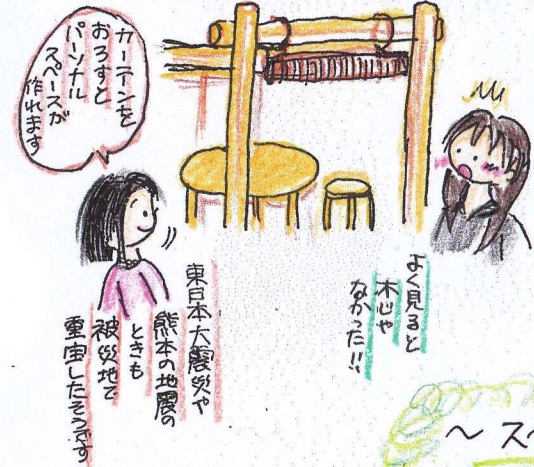 カーテンを
おろすと
パーソナル
スペースが
作れます
よく見ると
木じゃ
なかった!!
東日本大震災や
熊本の地震の
ときも
被災地で
重宝したそうです
～ス